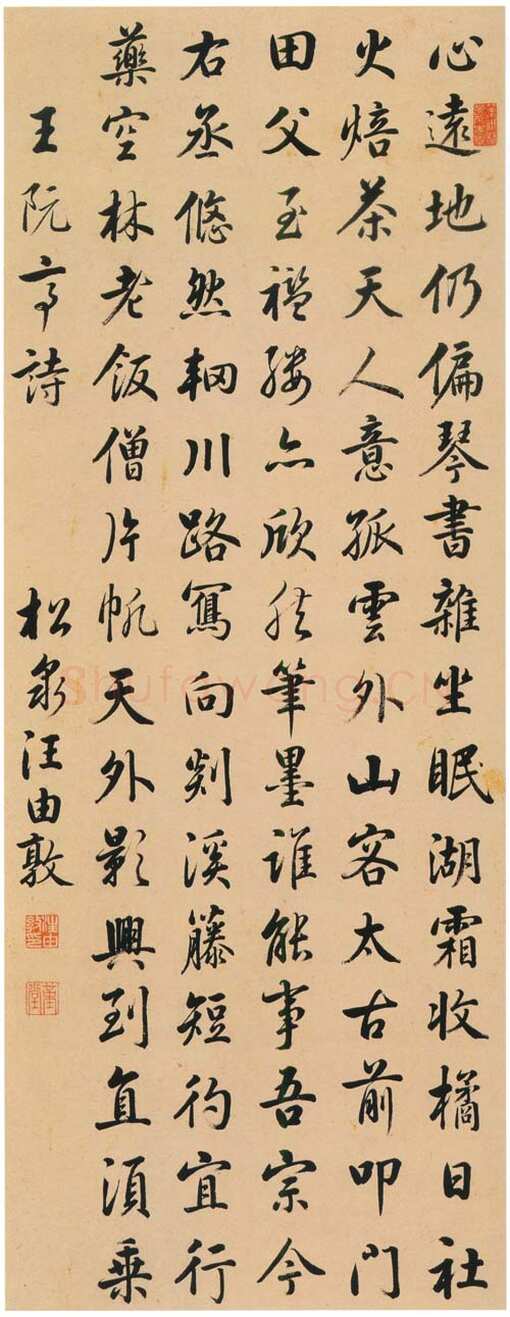 心遠地仍偏琴書雜坐眠湖霜收橘日社
火焙茶天人意孤雲外山容太古前叩門
田父至襤縷亦欣然筆墨誰能事吾宗今
右丞悠然輞川路寫向剡溪藤短彴宜行
藥空林老飯僧片帆天外影興到直須乘
王阮亭詩 松泉汪由敦